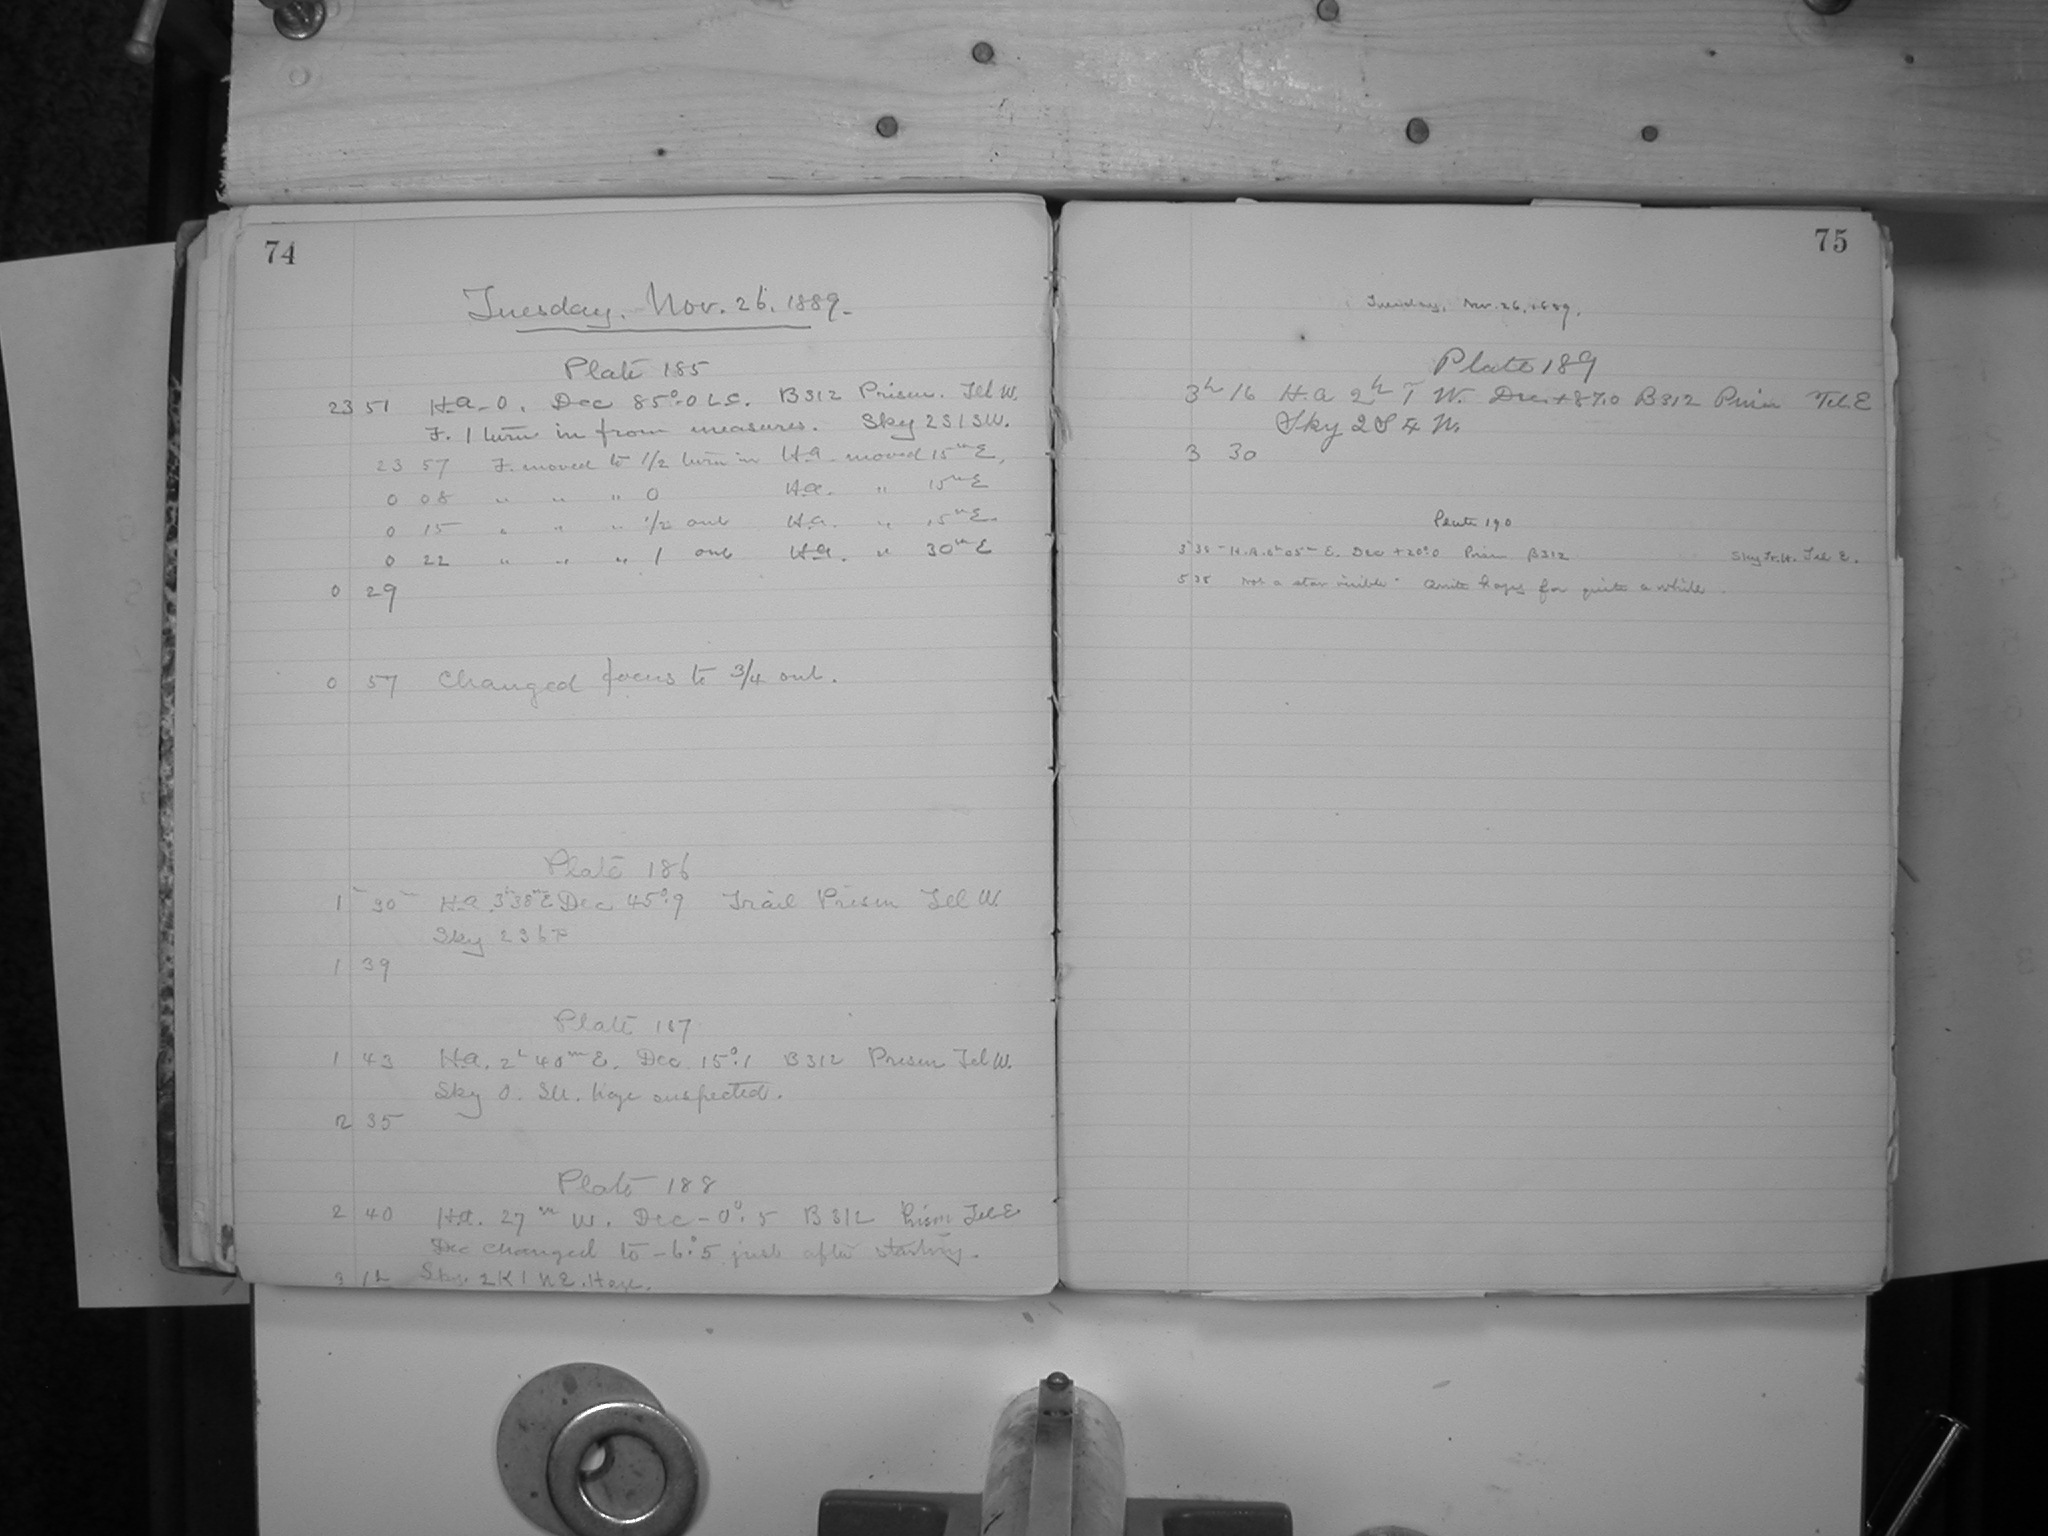 74
Tuesday. Nov. 26. 1889.
Plate 185
23 51 H.a. 0. Dec 85°.0 L.C. B312 Prism. Tel W.
F. 1 turn in from measures. Sky 2S1SW.
23 57 F. moved to 1/2 turn in H.a. moved 15m E.
0 08 " " " 0 H.a. " 15m E
0 15 " " " 1/2 out H.a. " 15m E.
0 22 " " " 1 out H.a. " 30m E
0 29
0 57 Changed focus to 3/4 out.
Plate 186
1 30 H.a. 3h38m E Dec 45°.9 Trail Prism Tel W.
Sky 2S6F
1 39
Plate 187
1 43 H.a. 2h 40m E. Dec 15°.1 B312 Prism Tel W.
Sky 0. Haze suspected.
2 35
Plate 188
2 40 H.a. 27m W. Dec -0°.5 B312 Prism Tel E
Dec changed to -6°.5 just after starting.
3 12 Sky. 2K1NE. Haze.
75
Tuesday, Nov. 26, 1889.
Plate 189
3h 16 H.a 2h W. Dec. +87.0 B312 Prism Tel. E
Sky 2S4N.
3 30
Plate 190
3 35 H.A. 0h 05m E. Dec +20°.0 Prism B312 Sky Tel E.
5 35 Not a star visible. Quite hazy for quite a while.